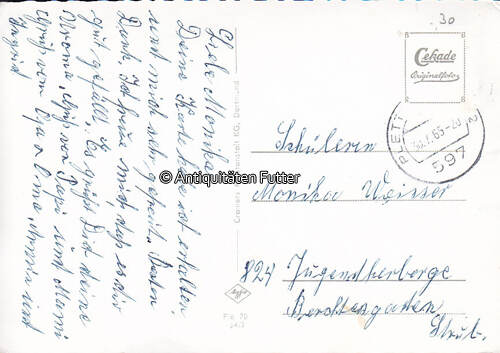 Liebe Monika!
Deine Karte habe ich erhalten
und mich sehr gefreut. Besten
Dank. Ich freue mich, daß es dir
gut gefällt. Es grüßt Dich deine
Oroma, Grüße von Papi und Mami
Grüße von Opa u Oma,
Ingrid
Cramers Kunstanstalt KG, Dortmund
30
Cekade
Originalfoto
PLETT
30.7.65-20
597
Schülerin
Monika Weisser
824 Jugendherberge
Berchtesgaden
Strub.
Agfa
Ple 70
© Antiquitäten Futter